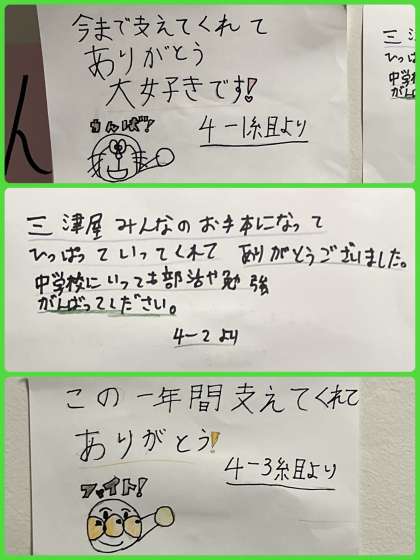 今まで支えてくれて
ありがとう
大好きです!
がんば!
4-1組より
三
ひっぱ
中学校
がんば
ん
三津屋みんなのお手本になって
ひっぱっていってくれて ありがとうございました。
中学校にいっても部活や勉強
がんばってください。
4-2より
この一年間支えてくれて
ありがとう!
ファイト!
4-3組より